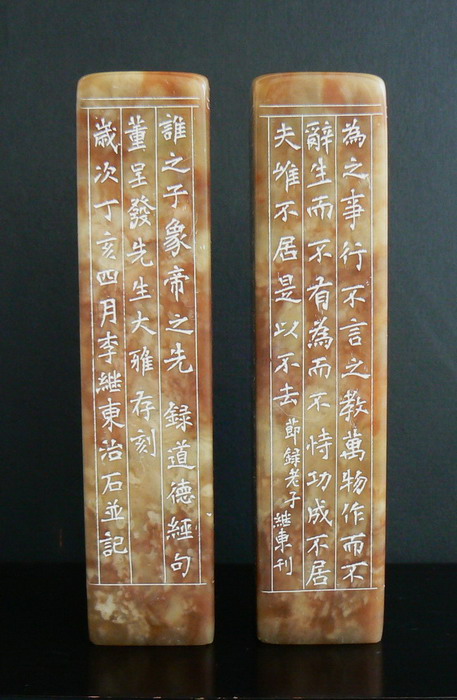 為之事行不言之教萬物作而不
辭生而不有為而不恃功成不居
夫唯不居是以不去 節錄老子 繼東刊
誰之子象帝之先 錄道德經句
董呈發先生大雅存刻
歲次丁亥四月李繼東治石並記